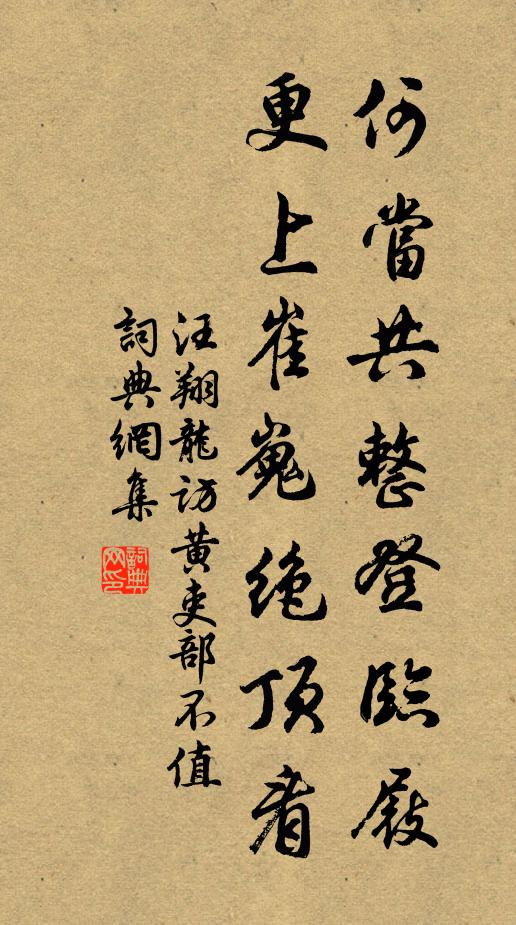 何當共整登臨屐
更上崔嵬絶頂看
汪翔龍訪黃吏部不值
詞典網集
詞典網印